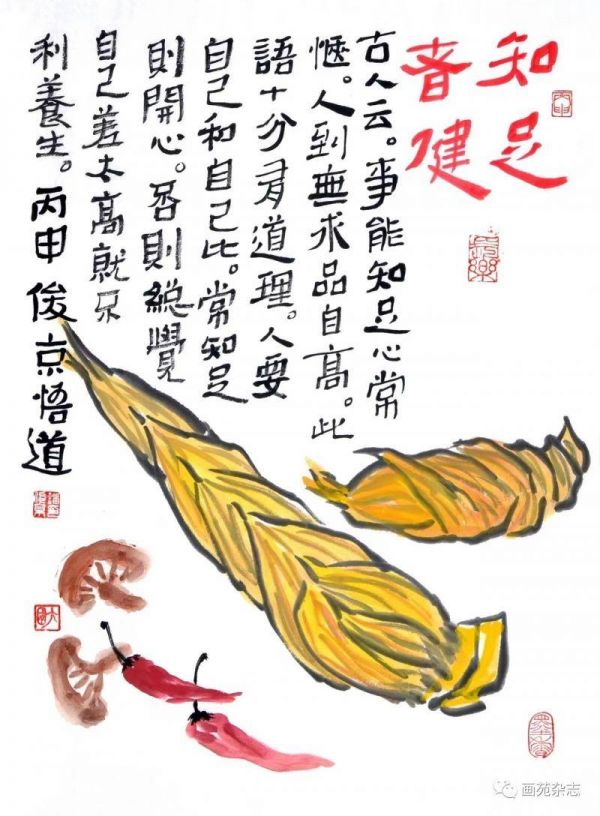 知足
者健
丙申
長樂
古人云。事能知足心常
愜。人到無求品自高。此
語十分有道理。人要
自己和自己比。常知足
則開心。否則總覺
自己差太高就不
利養生。丙申 俊京悟道
画苑杂志